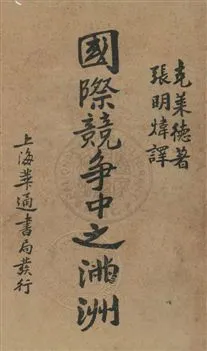 克萊德著
張明煒譯
國際競爭中之滿洲
上海華通書局發行